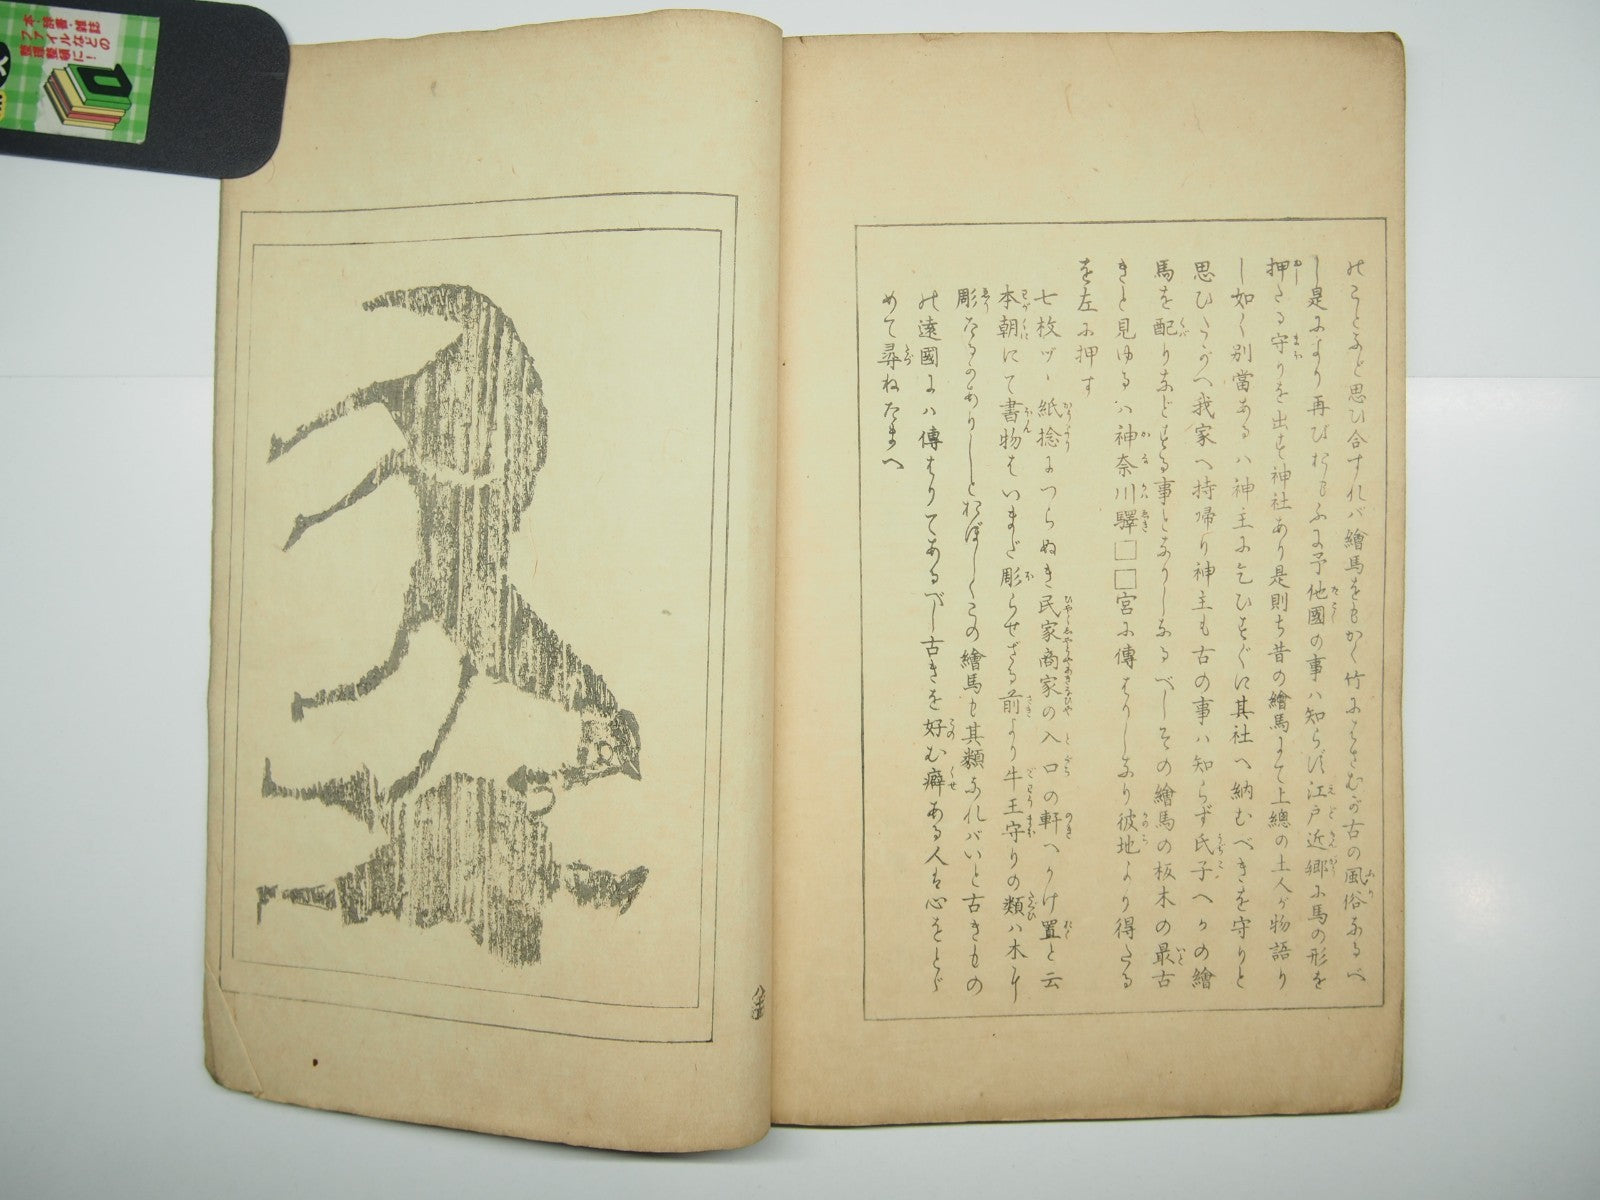 のことなど思ひ合すれバ繪馬をもかく竹にはさむが古の風俗なるべ
し是によりて再びおもふに予他國の事ハ知らず江戸近郷に馬の形を
押たる守りを出す神社あり是則ち昔の繪馬にて上總の土人が物語り
し如く別當あるハ神主に乞ひすぐに其社へ納むべきを守りと
思ひたがへ我家へ持帰り神主も古の事ハ知らず氏子へかの繪
馬を配りなどする事となりしなるべしその繪馬の板木の最古
きと見ゆるハ神奈川驛□□宮に傳はりしなり彼地より得たる
を左に押す
七枚ヅヽ紙捻につらぬき民家商家の入口の軒へかけ置と云
本朝にて書物はいまだ彫らせざる前より牛王守りの類ハ木に
彫たるがありしとおぼしくこの繪馬も其類なれバいと古きもの
の遠國にハ傳はりてあるべし古きを好む癖ある人は心をとゞ
めて尋ねたまへ
本・辞書・雑誌
ファイルなどの
整理整頓に!